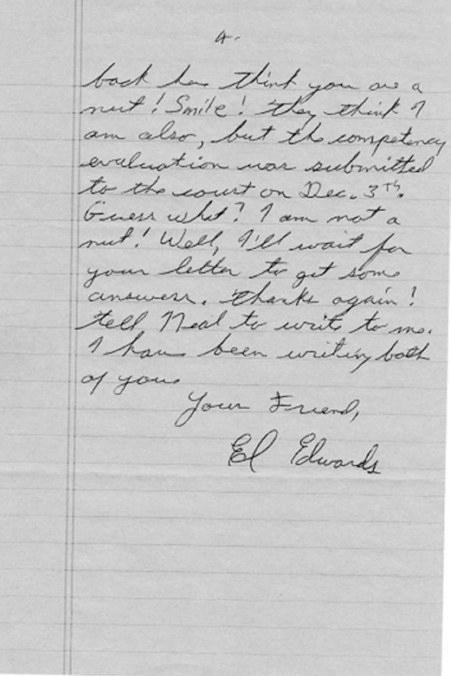 4.
back here think you are a
nut! Smile! they think I
am also, but the competency
evaluation was submitted
to the court on Dec. 3th.
Guess what? I am not a
nut! Well, I'll wait for
your letter to get some
answers. thanks again!
tell Neal to write to me.
I have been writing both
of you.
Your Friend,
Ed Edwards